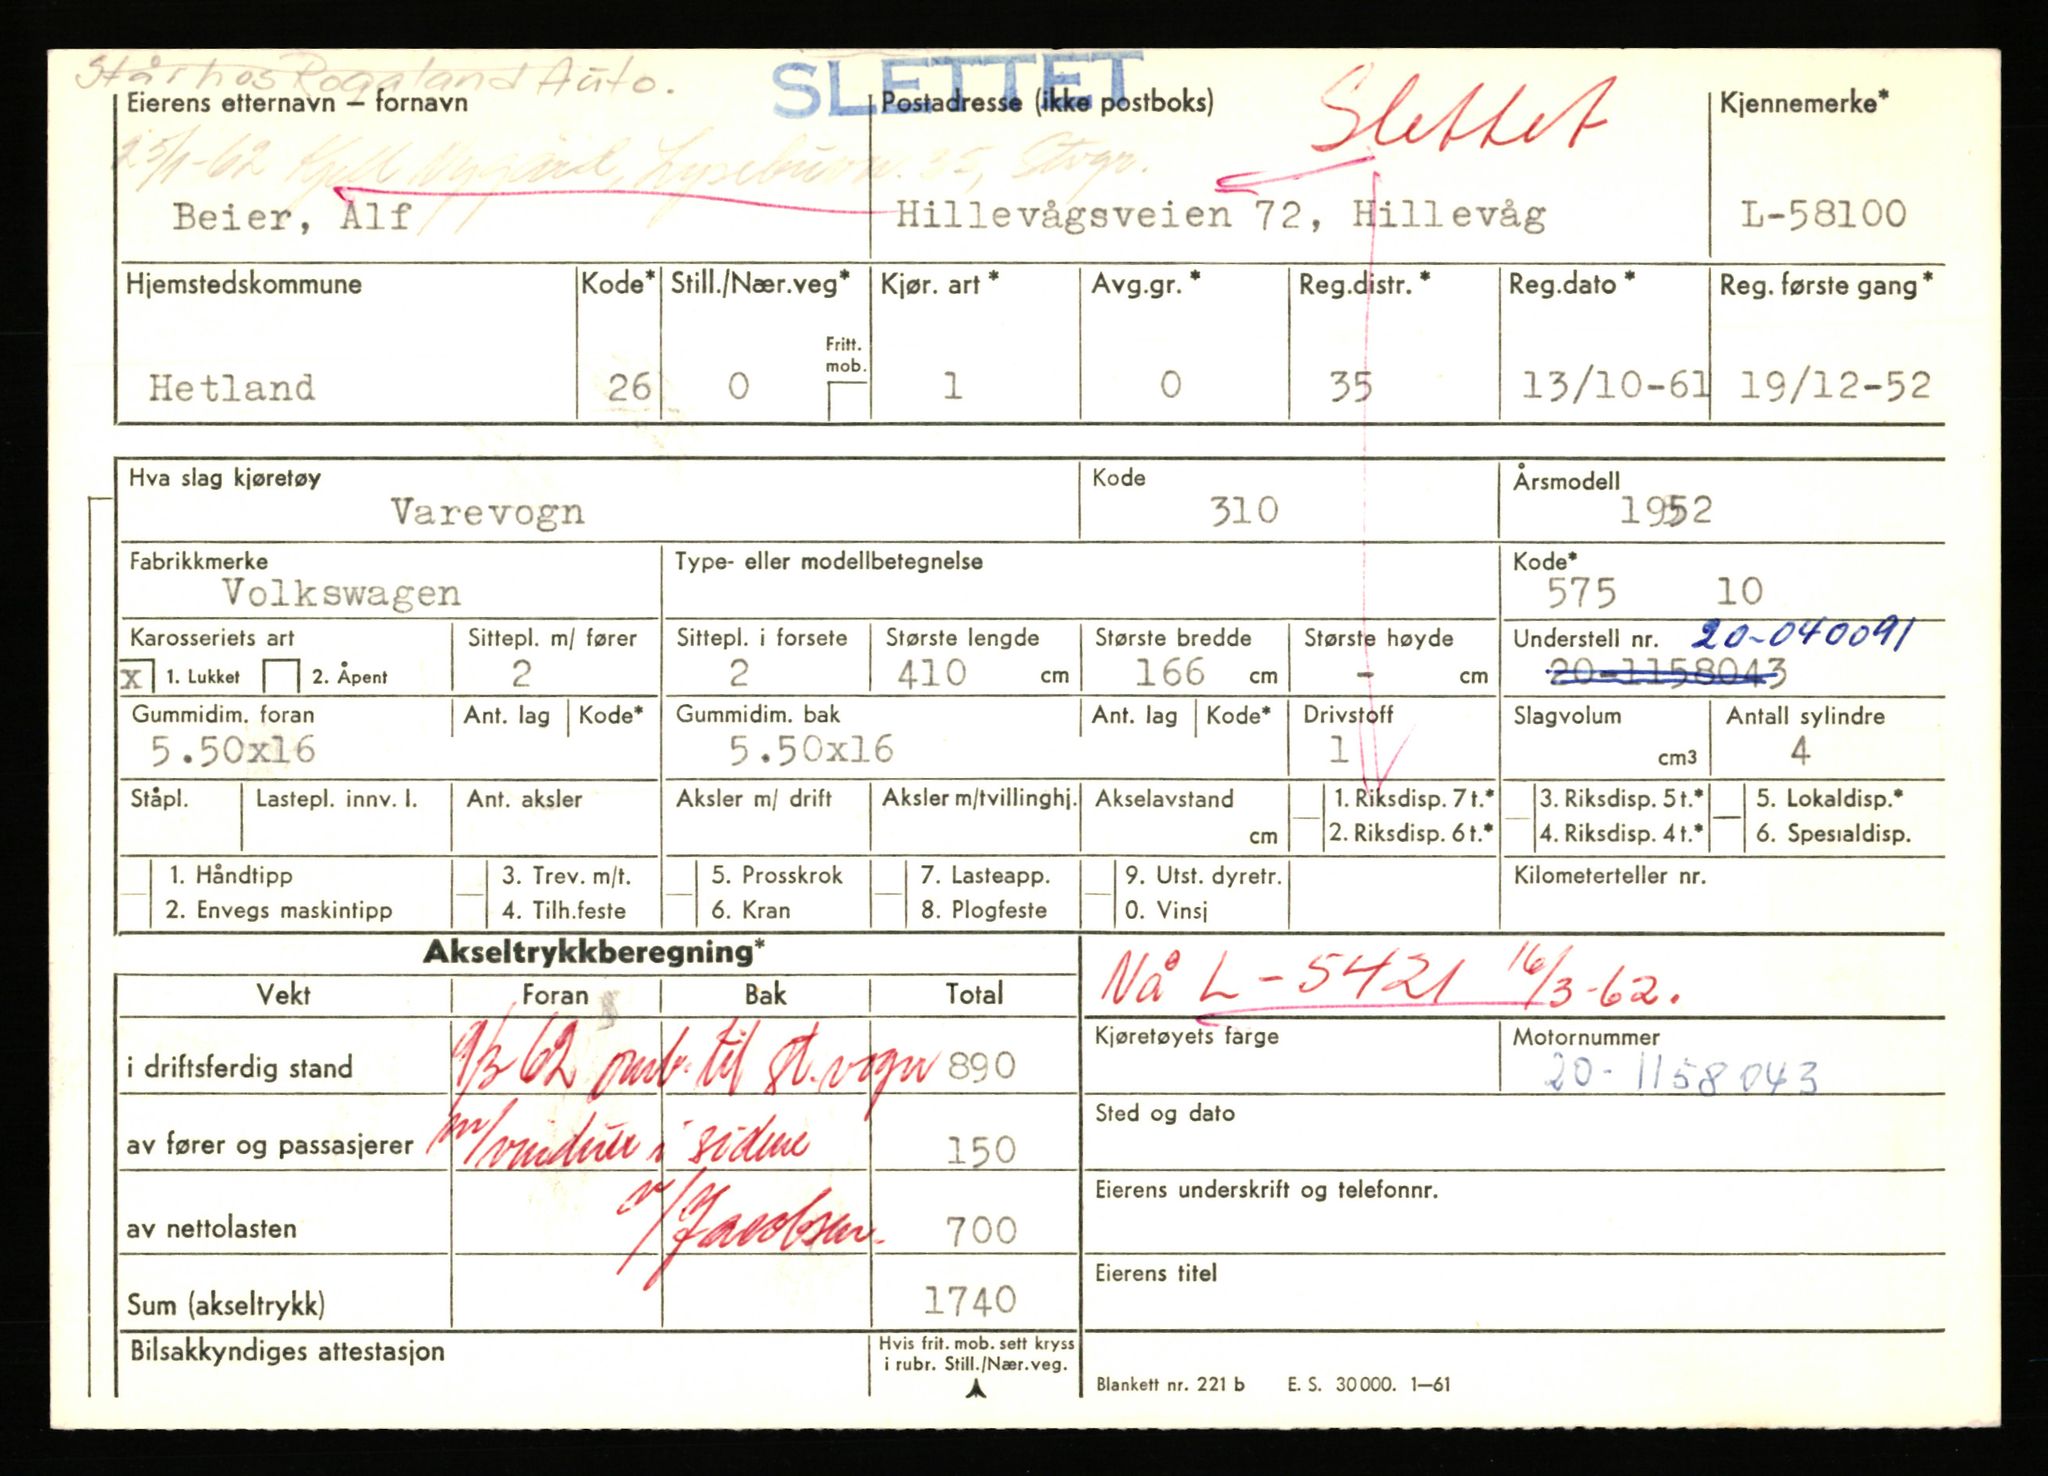 Står hos Rogaland Auto.
SLETTET
Eierens etternavn – fornavn Postadresse (ikke postboks) Slettet Kjennemerke*
25/1-62 Kjell Nygård, 35, Stvgr.
Beier, Alf Hillevågsveien 72, Hillevåg L-58100
Hjemstedskommune Kode* Still./Nær.veg* Kjør. art* Avg.gr.* Reg.distr.* Reg.dato* Reg. første gang*
Fritt. mob.
Hetland 26 0 1 0 35 13/10-61 19/12-52
Hva slag kjøretøy Kode Årsmodell
Varevogn 310 1952
Fabrikkmerke Type- eller modellbetegnelse Kode*
Volkswagen 575 10
Karosseriets art Sittepl. m/ fører Sittepl. i forsete Største lengde Største bredde Største høyde Understell nr. 20-040091
x 1. Lukket 2. Åpent 2 2 410 cm 166 cm - cm 20-1158043
Gummidim. foran Ant. lag Kode* Gummidim. bak Ant. lag Kode* Drivstoff Slagvolum Antall sylindre
5.50x16 5.50x16 1 cm3 4
Ståpl. Lastepl. innv. l. Ant. aksler Aksler m/ drift Aksler m/tvillinghj. Akselavstand 1. Riksdisp. 7 t.* 3. Riksdisp. 5 t.* 5. Lokaldisp.*
cm 2. Riksdisp. 6 t.* 4. Riksdisp. 4 t.* 6. Spesialdisp.
1. Håndtipp 3. Trev. m/t. 5. Prosskrok 7. Lasteapp. 9. Utst. dyretr. Kilometerteller nr.
2. Envegs maskintipp 4. Tilh.feste 6. Kran 8. Plogfeste 0. Vinsj
Akseltrykkberegning*
Nå L-5421 16/3-62.
Vekt Foran Bak Total
Kjøretøyets farge Motornummer
i driftsferdig stand 9/3-62 omb. til st.vogn 890 20-1158043
Sted og dato
av fører og passasjerer m/vinduer i sidene 150
Eierens underskrift og telefonnr.
av nettolasten Jacobsen. 700
Eierens titel
Sum (akseltrykk) 1740
Bilsakkyndiges attestasjon Hvis frit. mob. sett kryss
i rubr. Still./Nær.veg.
Blankett nr. 221 b E. S. 30000. 1–61